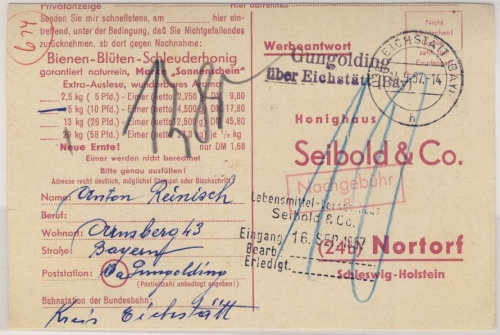 Privatanzeige
Senden Sie mir schnellstens, am hier ein-
treffend, unter der Bedingung, daß Sie Nichtgefallendes
zurücknehmen, ab dort gegen Nachnahme:
Bienen-Blüten-Schleuderhonig
garantiert naturrein, Marke „Sonnenschein"
Extra-Auslese, wunderbares Aroma
2,5 kg (5 Pfd.) - Eimer (netto 2,250 DM 9,80
5 kg (10 Pfd.) - Eimer (netto 4,500 DM 17,80
13 kg (26 Pfd.) - Eimer DM 45,80
29 kg (58 Pfd.) - Eimer je ½ kg
Neue Ernte! nur DM 1,68
Eimer werden nicht berechnet
Bitte genau ausfüllen!
Adresse recht deutlich, möglichst Stempel oder Blockschrift
Name: Anton Reinisch
Beruf:
Wohnort: Arnsberg 43
Straße: Bayern
Poststation: Gungolding
(Postleitzahl unbedingt angeben!)
Bahnstation der Bundesbahn:
Kreis Eichstätt
624
hier abtrennen
Nicht
Werbeantwort
Gungolding
über Eichstätt (Bay)
EICHSTÄTT (BAY)
9.57.-14
h
Honighaus
Seibold & Co.
Nachgebühr
Lebensmittel-
Seibold & Co.
Eingang 16. SEP. 1957
Bearb.
Erledigt
(24b) Nortorf
Schleswig-Holstein